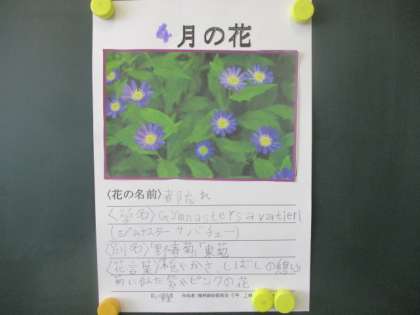 4月の花
〈花の名前〉都忘れ
〈学名〉Gymnaster savatieri
(ジムナスター サバチェー)
〈別名〉野春菊、東菊
〈花言葉〉穏やかさ、しばしの憩い
菊に似た紫やピンクの花